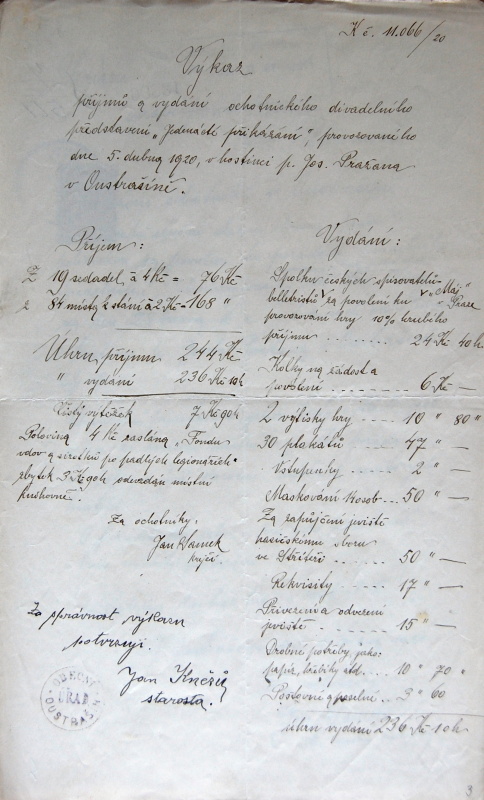 K č. 11.066/20
Výkaz
příjmů a vydání ochotnického divadelního
představení „Jedenácté přikázání", provozovaného
dne 5. dubna 1920, v hostinci p. Jos. Pražana
v Oustrašíně.
Příjem:
Z 19 sedadel à 4 Kč = 76 Kč
z 84 míst k stání à 2 Kč = 168 "
Úhrn příjmu 244 Kč
" vydání 236 Kč 10h
Čistý výtěžek 7 Kč 90h
Polovina 4 Kč zaslána „Fondu
vdov a sirotků po padlých legionářích"
zbytek 3 Kč 90h odevzdán místní
knihovně.
Za ochotníky:
Jan
krejčí
Za správnost výkazu
potvrzuji.
Jan
starosta.
OBECNÍ
ÚŘAD
Vydání:
Spolku českých spisovatelů
belletristů „Máj" v Praze za povolení ku
provozování hry 10% hrubého
příjmu 24 Kč 40h
Kolky na žádost a
povolení ........ 6 Kč —
2 výtisky hry ..... 10 " 80 "
30 plakátů ..... 47 " —
Vstupenky .... 2 " —
Maskování osob .. 50 " —
Za zapůjčení jeviště
hasičskému sboru
ve Střítěži ...... 50 " —
Rekvisity ..... 17 " —
Přivezení a odvezení
jeviště ....... 15 " —
Drobné potřeby, jako:
papír, hřebíky atd. .... 10 " 70 "
Poštovné a porulné .. 3 " 60
Úhrn vydání 236 Kč 10h
3